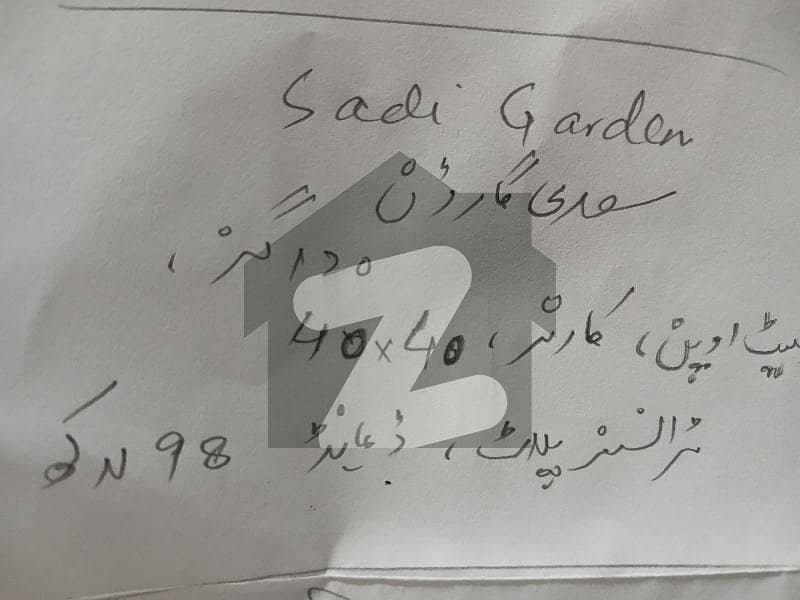 Sadi Garden
سعدی گارڈن
گز،
اوپن، کارنر، 40×40
ٹرانسفر پلاٹ، ڈیمانڈ 98 لاکھ